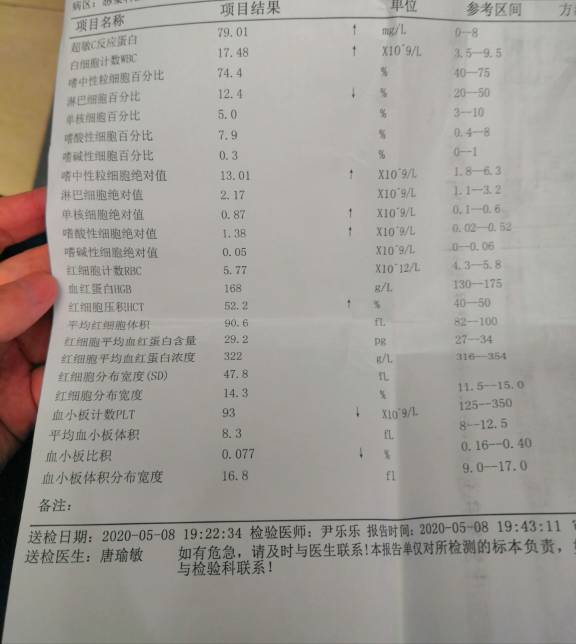 病区:
项目名称 项目结果 单位 参考区间
超敏C反应蛋白 79.01 ↑ mg/L 0—8
白细胞计数WBC 17.48 ↑ X10^9/L 3.5—9.5
嗜中性粒细胞百分比 74.4 % 40—75
淋巴细胞百分比 12.4 ↓ % 20—50
单核细胞百分比 5.0 % 3—10
嗜酸性细胞百分比 7.9 % 0.4—8
嗜碱性细胞百分比 0.3 % 0—1
嗜中性粒细胞绝对值 13.01 ↑ X10^9/L 1.8—6.3
淋巴细胞绝对值 2.17 X10^9/L 1.1—3.2
单核细胞绝对值 0.87 ↑ X10^9/L 0.1—0.6
嗜酸性细胞绝对值 1.38 ↑ X10^9/L 0.02—0.52
嗜碱性细胞绝对值 0.05 X10^9/L 0—0.06
红细胞计数RBC 5.77 X10^12/L 4.3—5.8
血红蛋白HGB 168 g/L 130—175
红细胞压积HCT 52.2 ↑ % 40—50
平均红细胞体积 90.6 fL 82—100
红细胞平均血红蛋白含量 29.2 pg 27—34
红细胞平均血红蛋白浓度 322 g/L 316—354
红细胞分布宽度(SD) 47.8 fL
红细胞分布宽度 14.3 % 11.5—15.0
血小板计数PLT 93 ↓ X10^9/L 125—350
平均血小板体积 8.3 fL 8—12.5
血小板比积 0.077 ↓ % 0.16—0.40
血小板体积分布宽度 16.8 fl 9.0—17.0
备注:
送检日期: 2020-05-08 19:22:34 检验医师: 尹乐乐 报告时间: 2020-05-08 19:43:11
送检医生: 唐瑜敏 如有危急, 请及时与医生联系!本报告单仅对所检测的标本负责,
与检验科联系!